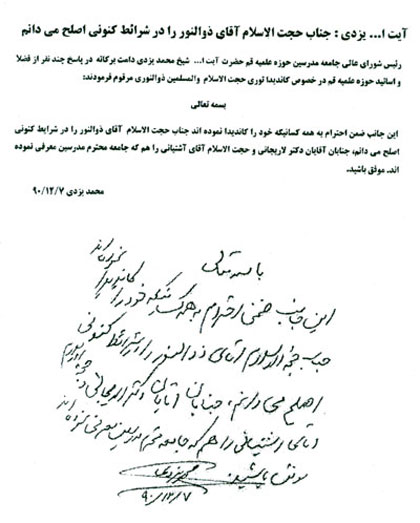 آیت ا... یزدی : جناب حجت الاسلام آقای ذوالنور را در شرائط کنونی اصلح می دانم
رئیس شورای عالی جامعه مدرسین حوزه علمیه قم حضرت آیت ا... شیخ محمد یزدی دامت برکاته در پاسخ چند نفر از فضلا
و اساتید حوزه علمیه قم در خصوص کاندیدا توری حجت الاسلام والمسلمین ذوالنوری مرقوم فرمودند:
بسمه تعالی
این جانب ضمن احترام به همه کسانیکه خود را کاندیدا نموده اند جناب حجت الاسلام آقای ذوالنور را در شرایط کنونی
اصلح می دانم، جنابان آقایان دکتر لاریجانی و حجت الاسلام آقای آشتیانی را هم که جامعه محترم مدرسین معرفی نموده
اند. موفق باشید.
محمد یزدی ۹۰/۱۲/۷
باسمه تعالی
این جانب ضمن احترام به همه کسانیکه خود را کاندیدا نموده اند
جناب حجة الاسلام آقای ذوالنور را در شرائط کنونی
اصلح می دانم، جنابان آقایان دکتر لاریجانی و حجة الاسلام
آقای آشتیانی را هم که جامعه محترم مدرسین معرفی نموده اند
موفق باشید. محمد یزدی
۹۰/۱۲/۷